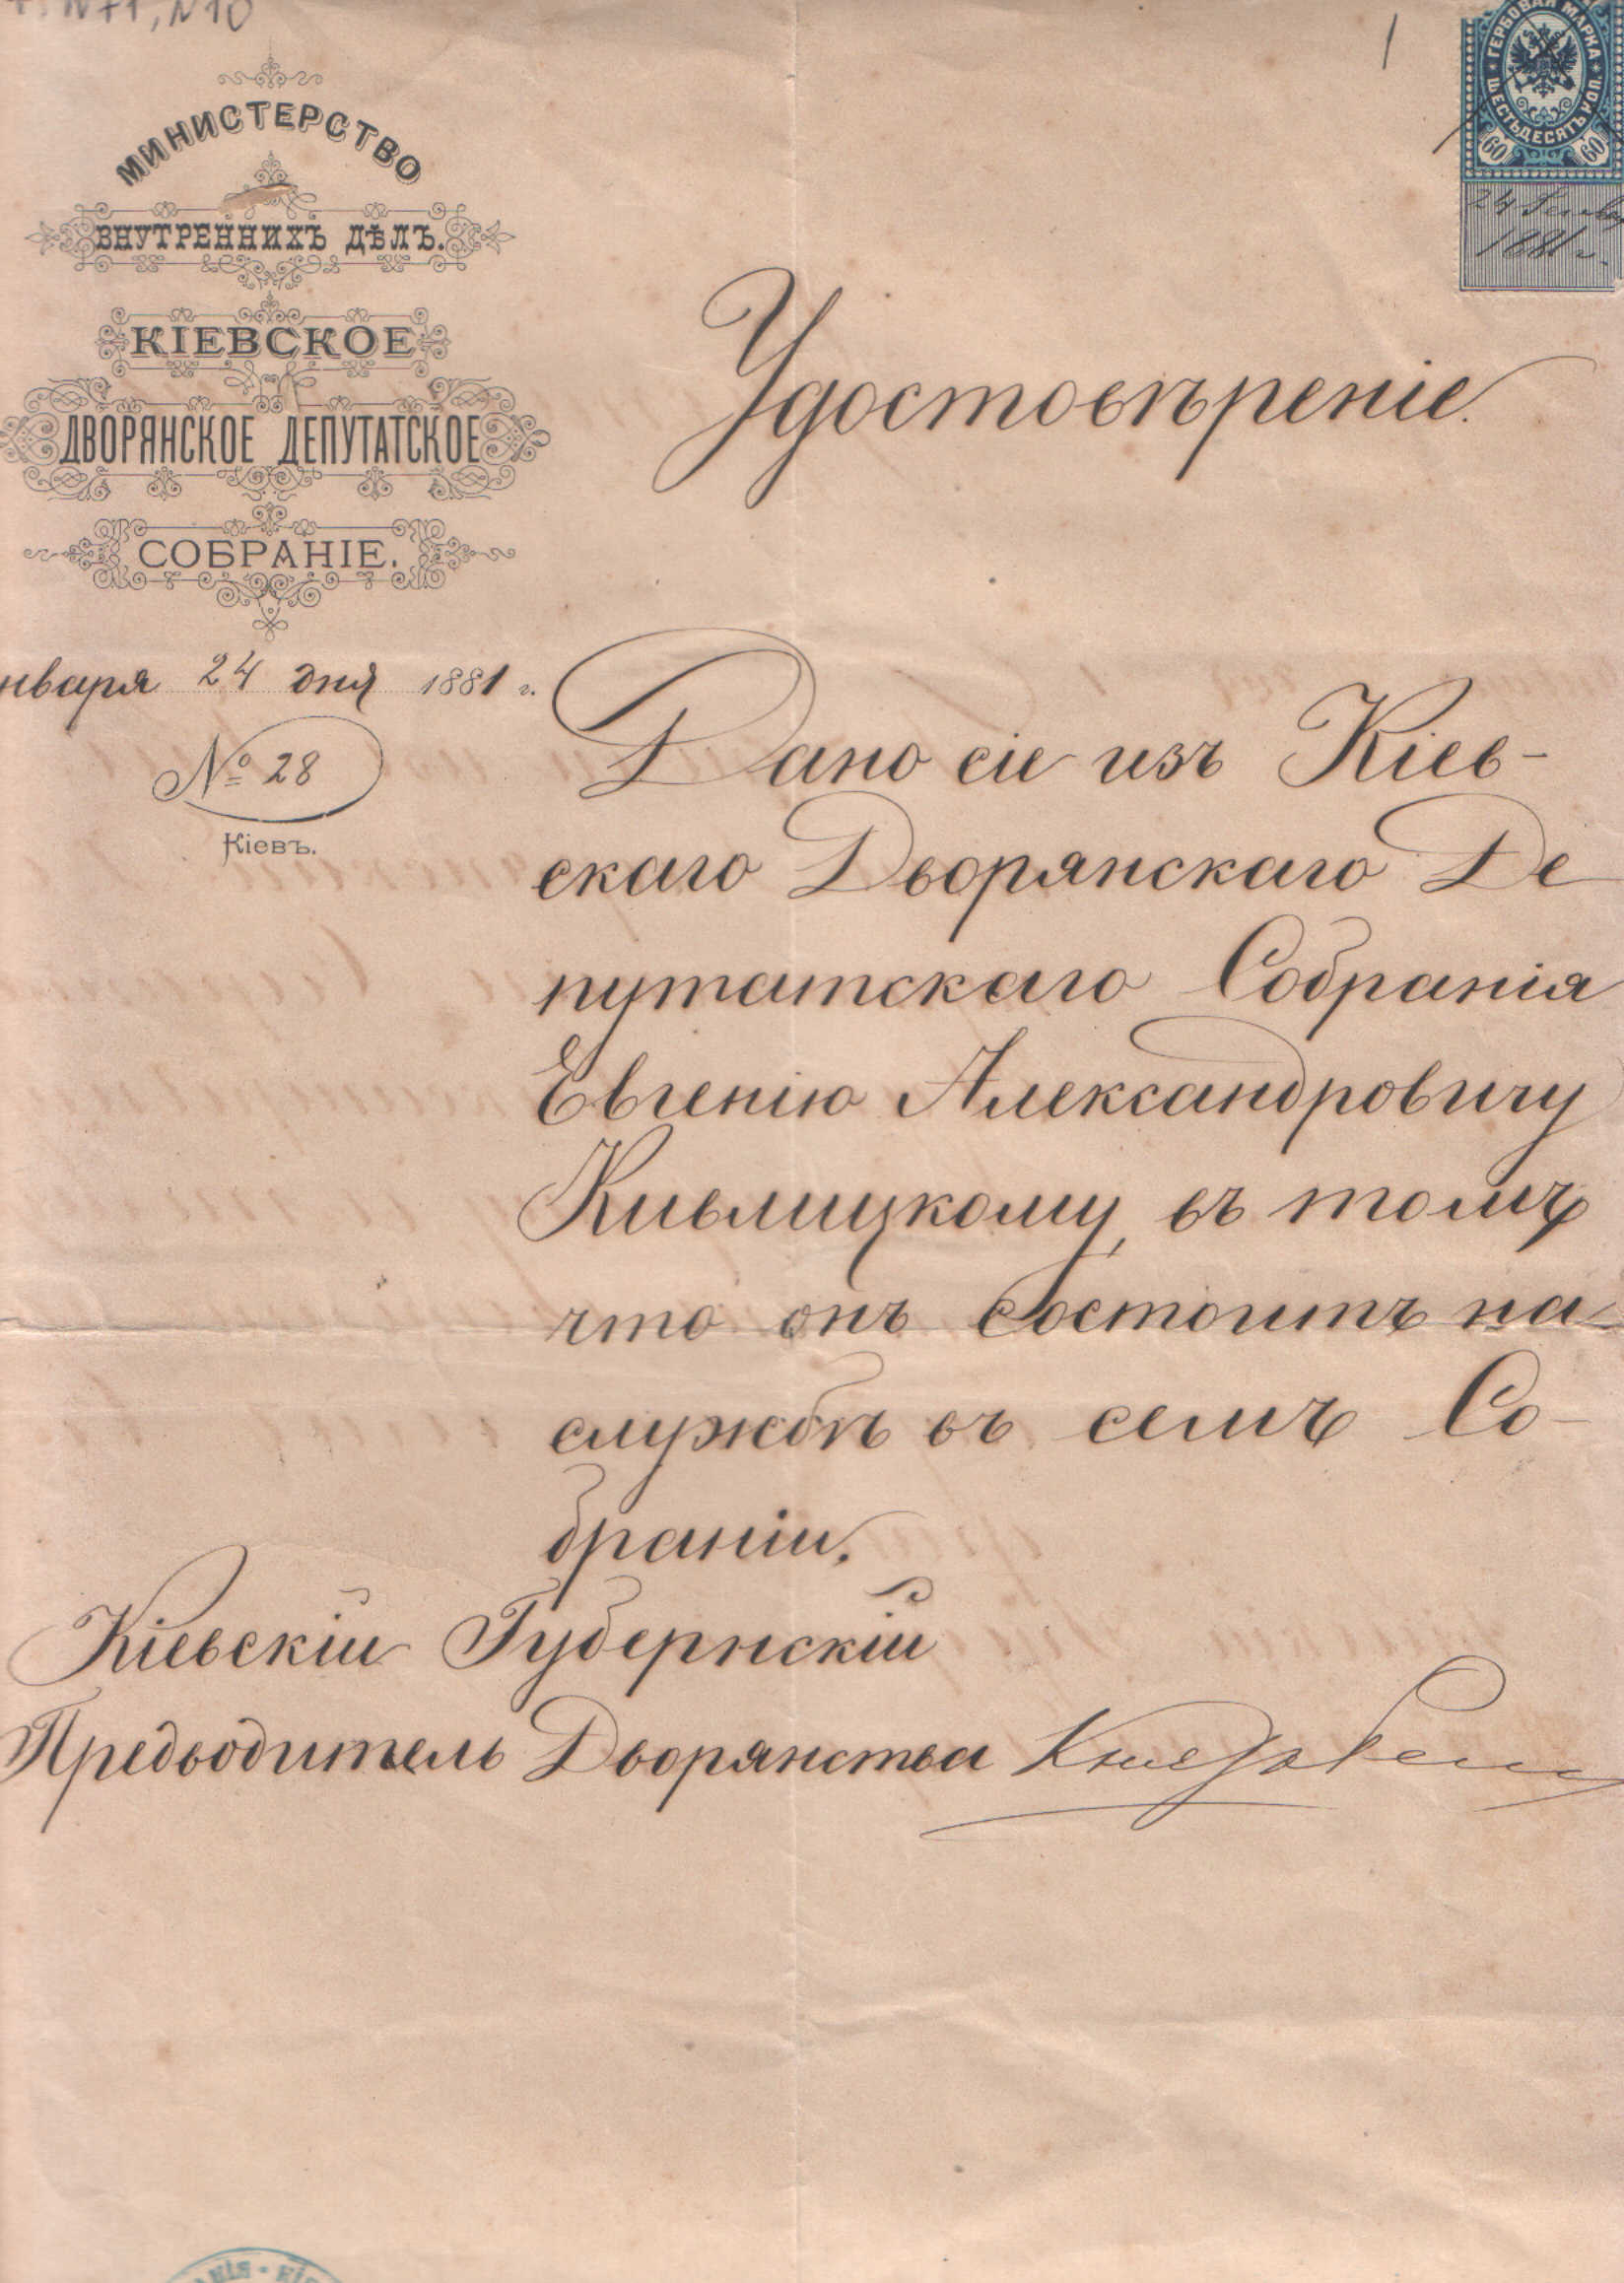 МИНИСТЕРСТВО
ВНУТРЕННИХЪ ДѢЛЪ.
КІЕВСКОЕ
ДВОРЯНСКОЕ ДЕПУТАТСКОЕ
СОБРАНІЕ.
нваря 24 дня 1881 г.
№ 28
Кіевъ.
ГЕРБОВАЯ МАРКА
ШЕСТЬДЕСЯТЪ КОП.
60 60
24
1881 г.
Удостовѣреніе.
Дано сіе изъ Кіев-
скаго Дворянскаго Де
путатскаго Собранія
Евгенію Александровичу
Кивлицкому, въ томъ
что онъ состоитъ на
службѣ въ семъ Со-
браніи.
Кіевскій Губернскій
Предводитель Дворянства